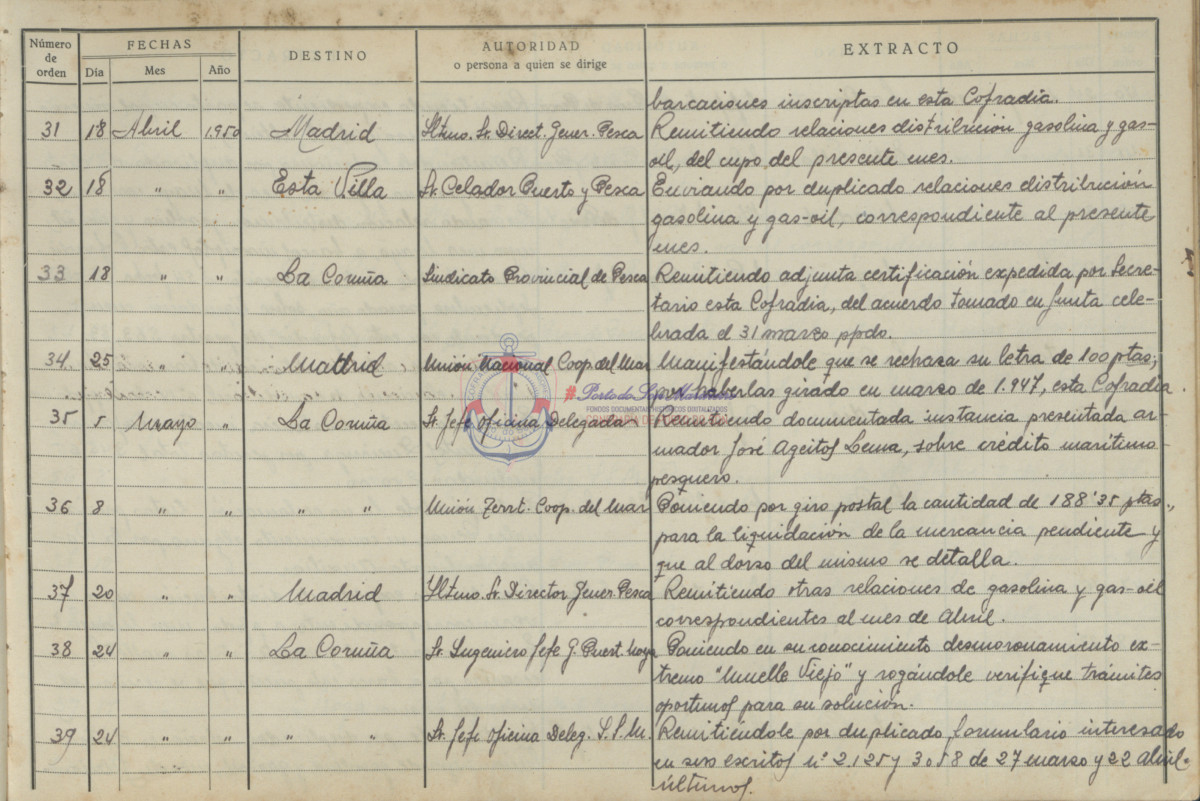 Número de orden FECHAS DESTINO AUTORIDAD o persona a quien se dirige EXTRACTO
Día Mes Año
barcaciones inscriptas en esta Cofradía.
31 18 Abril 1.950 Madrid Iltmo. Sr. Direct. Gener. Pesca Remitiendo relaciones distribución gasolina y gas-
oil, del cupo del presente mes.
32 18 " " Esta Villa Sr. Celador Puerto y Pesca Enviando por duplicado relaciones distribución
gasolina y gas-oil, correspondiente al presente
mes.
33 18 " " La Coruña Sindicato Provincial de Pesca Remitiendo adjunta certificación expedida por Secre-
tario esta Cofradía, del acuerdo tomado en Junta cele-
brada el 31 marzo ppdo.
34 25 " " Madrid Unión Nacional Coop. del Mar Manifestándole que se rechaza su letra de 100 ptas,
por haberlas girado en marzo de 1.947, esta Cofradía.
35 5 Mayo " La Coruña Sr. Jefe Oficina Delegada Remitiendo documentada instancia presentada ar-
mador José Ageitos Lema, sobre crédito marítimo
pesquero.
36 8 " " " " Unión Territ. Coop. del Mar Poniendo por giro postal la cantidad de 188'35 ptas.,
para la liquidación de la mercancia pendiente y
que al dorso del mismo se detalla.
37 20 " " Madrid Iltmo. Sr. Director Gener. Pesca Remitiendo otras relaciones de gasolina y gas-oil
correspondientes al mes de Abril.
38 24 " " La Coruña Sr. Ingeniero Jefe G. Puert. Poniendo en su conocimiento desmoronamiento ex-
tremo "Muelle Viejo" y rogándole verifique trámites
oportunos para su solución.
39 24 " " " " Sr. Jefe Oficina Deleg. S. S. M. Remitiéndole por duplicado formulario interesado
en sus escritos nº 2.125 y 3058 de 27 marzo y 22 Abril
últimos.
FONDOS DOCUMENTAIS HISTÓRICOS DIXITALIZADOS